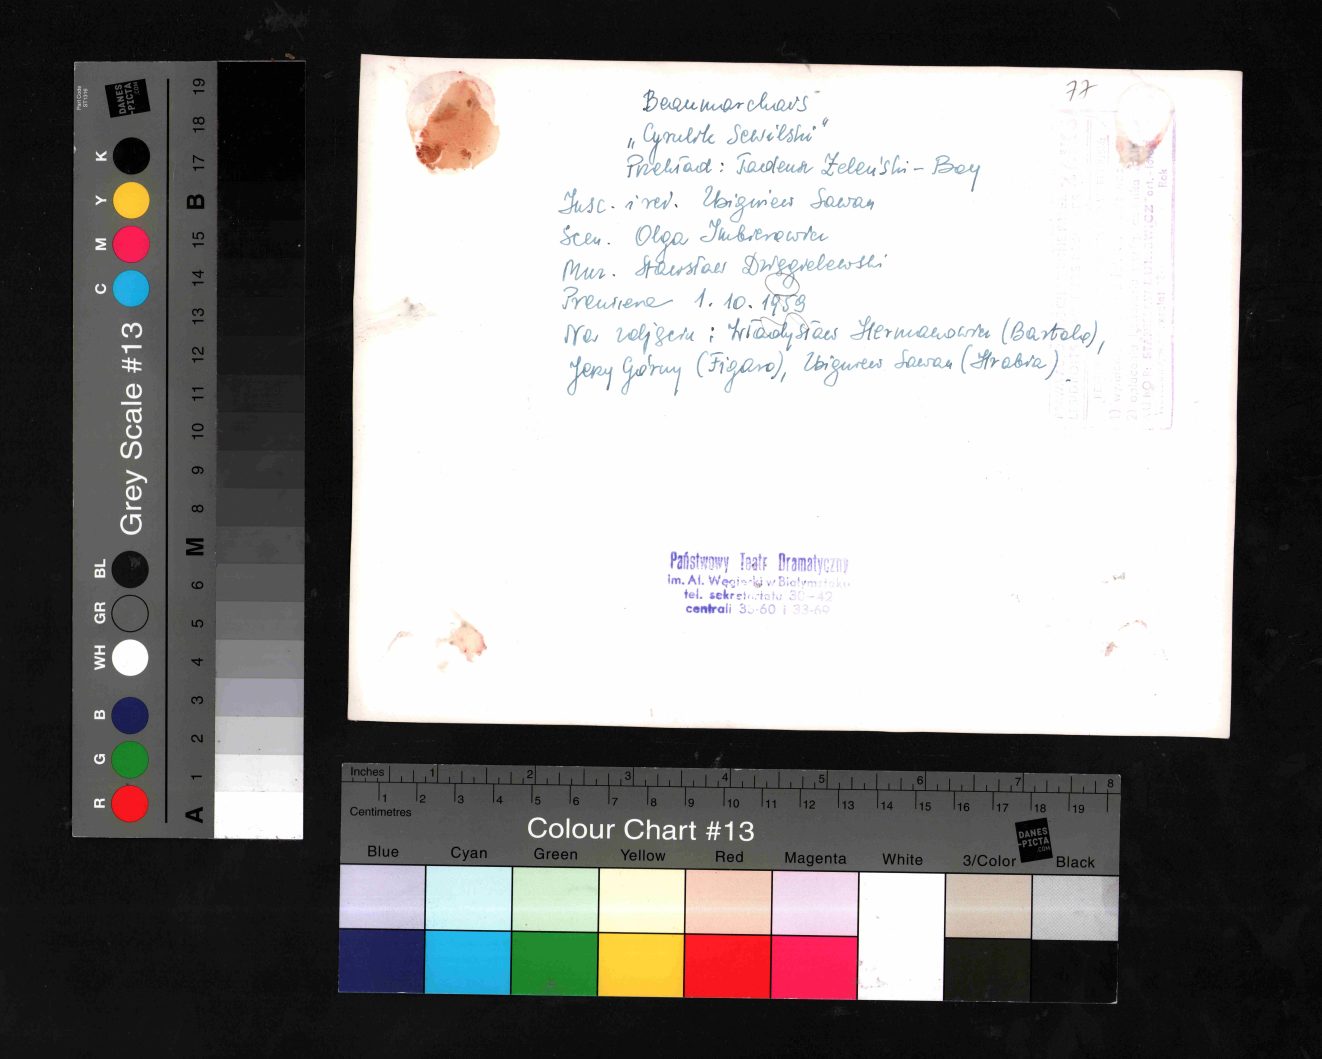 77
Beaumarchais
„Cyrulik Sewilski"
Przekład: Tadeusz Żeleński - Boy
Insc. i reż. Zbigniew Sawan
Scen. Olga
Muz. Stanisław Dzięgielewski
Premiera 1. 10. 1959
Na zdjęciu: Władysław Hermanowicz (Bartolo),
Jerzy Górny (Figaro), Zbigniew Sawan (Hrabia)
Państwowy Teatr Dramatyczny
im. Al. Węgierki w Białymstoku
tel. sekretariatu 30-42
centrali 33-60 i 33-69
Rok
Grey Scale #13
DANES
-PICTA
.COM
Part Code
ST1316
K Y M C BL GR WH B G R
19 18 17 B 15 14 13 12 11 10 9 8 M 6 5 4 3 2 1 A
Inches 1 2 3 4 5 6 7 8
Centimetres 1 2 3 4 5 6 7 8 9 10 11 12 13 14 15 16 17 18 19
Colour Chart #13
DANES
-PICTA
.COM
Blue Cyan Green Yellow Red Magenta White 3/Color Black